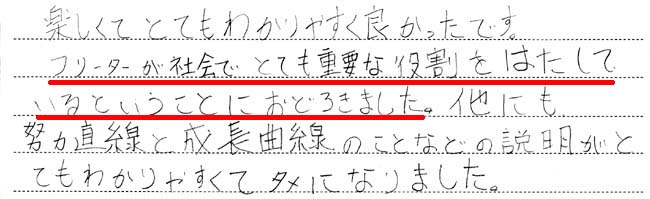 楽しくてとてもわかりやすく良かったです。
フリーターが社会でとても重要な役割をはたして
いるということにおどろきました。他にも
努力直線と成長曲線のことなどの説明がと
てもわかりやすくてタメになりました。